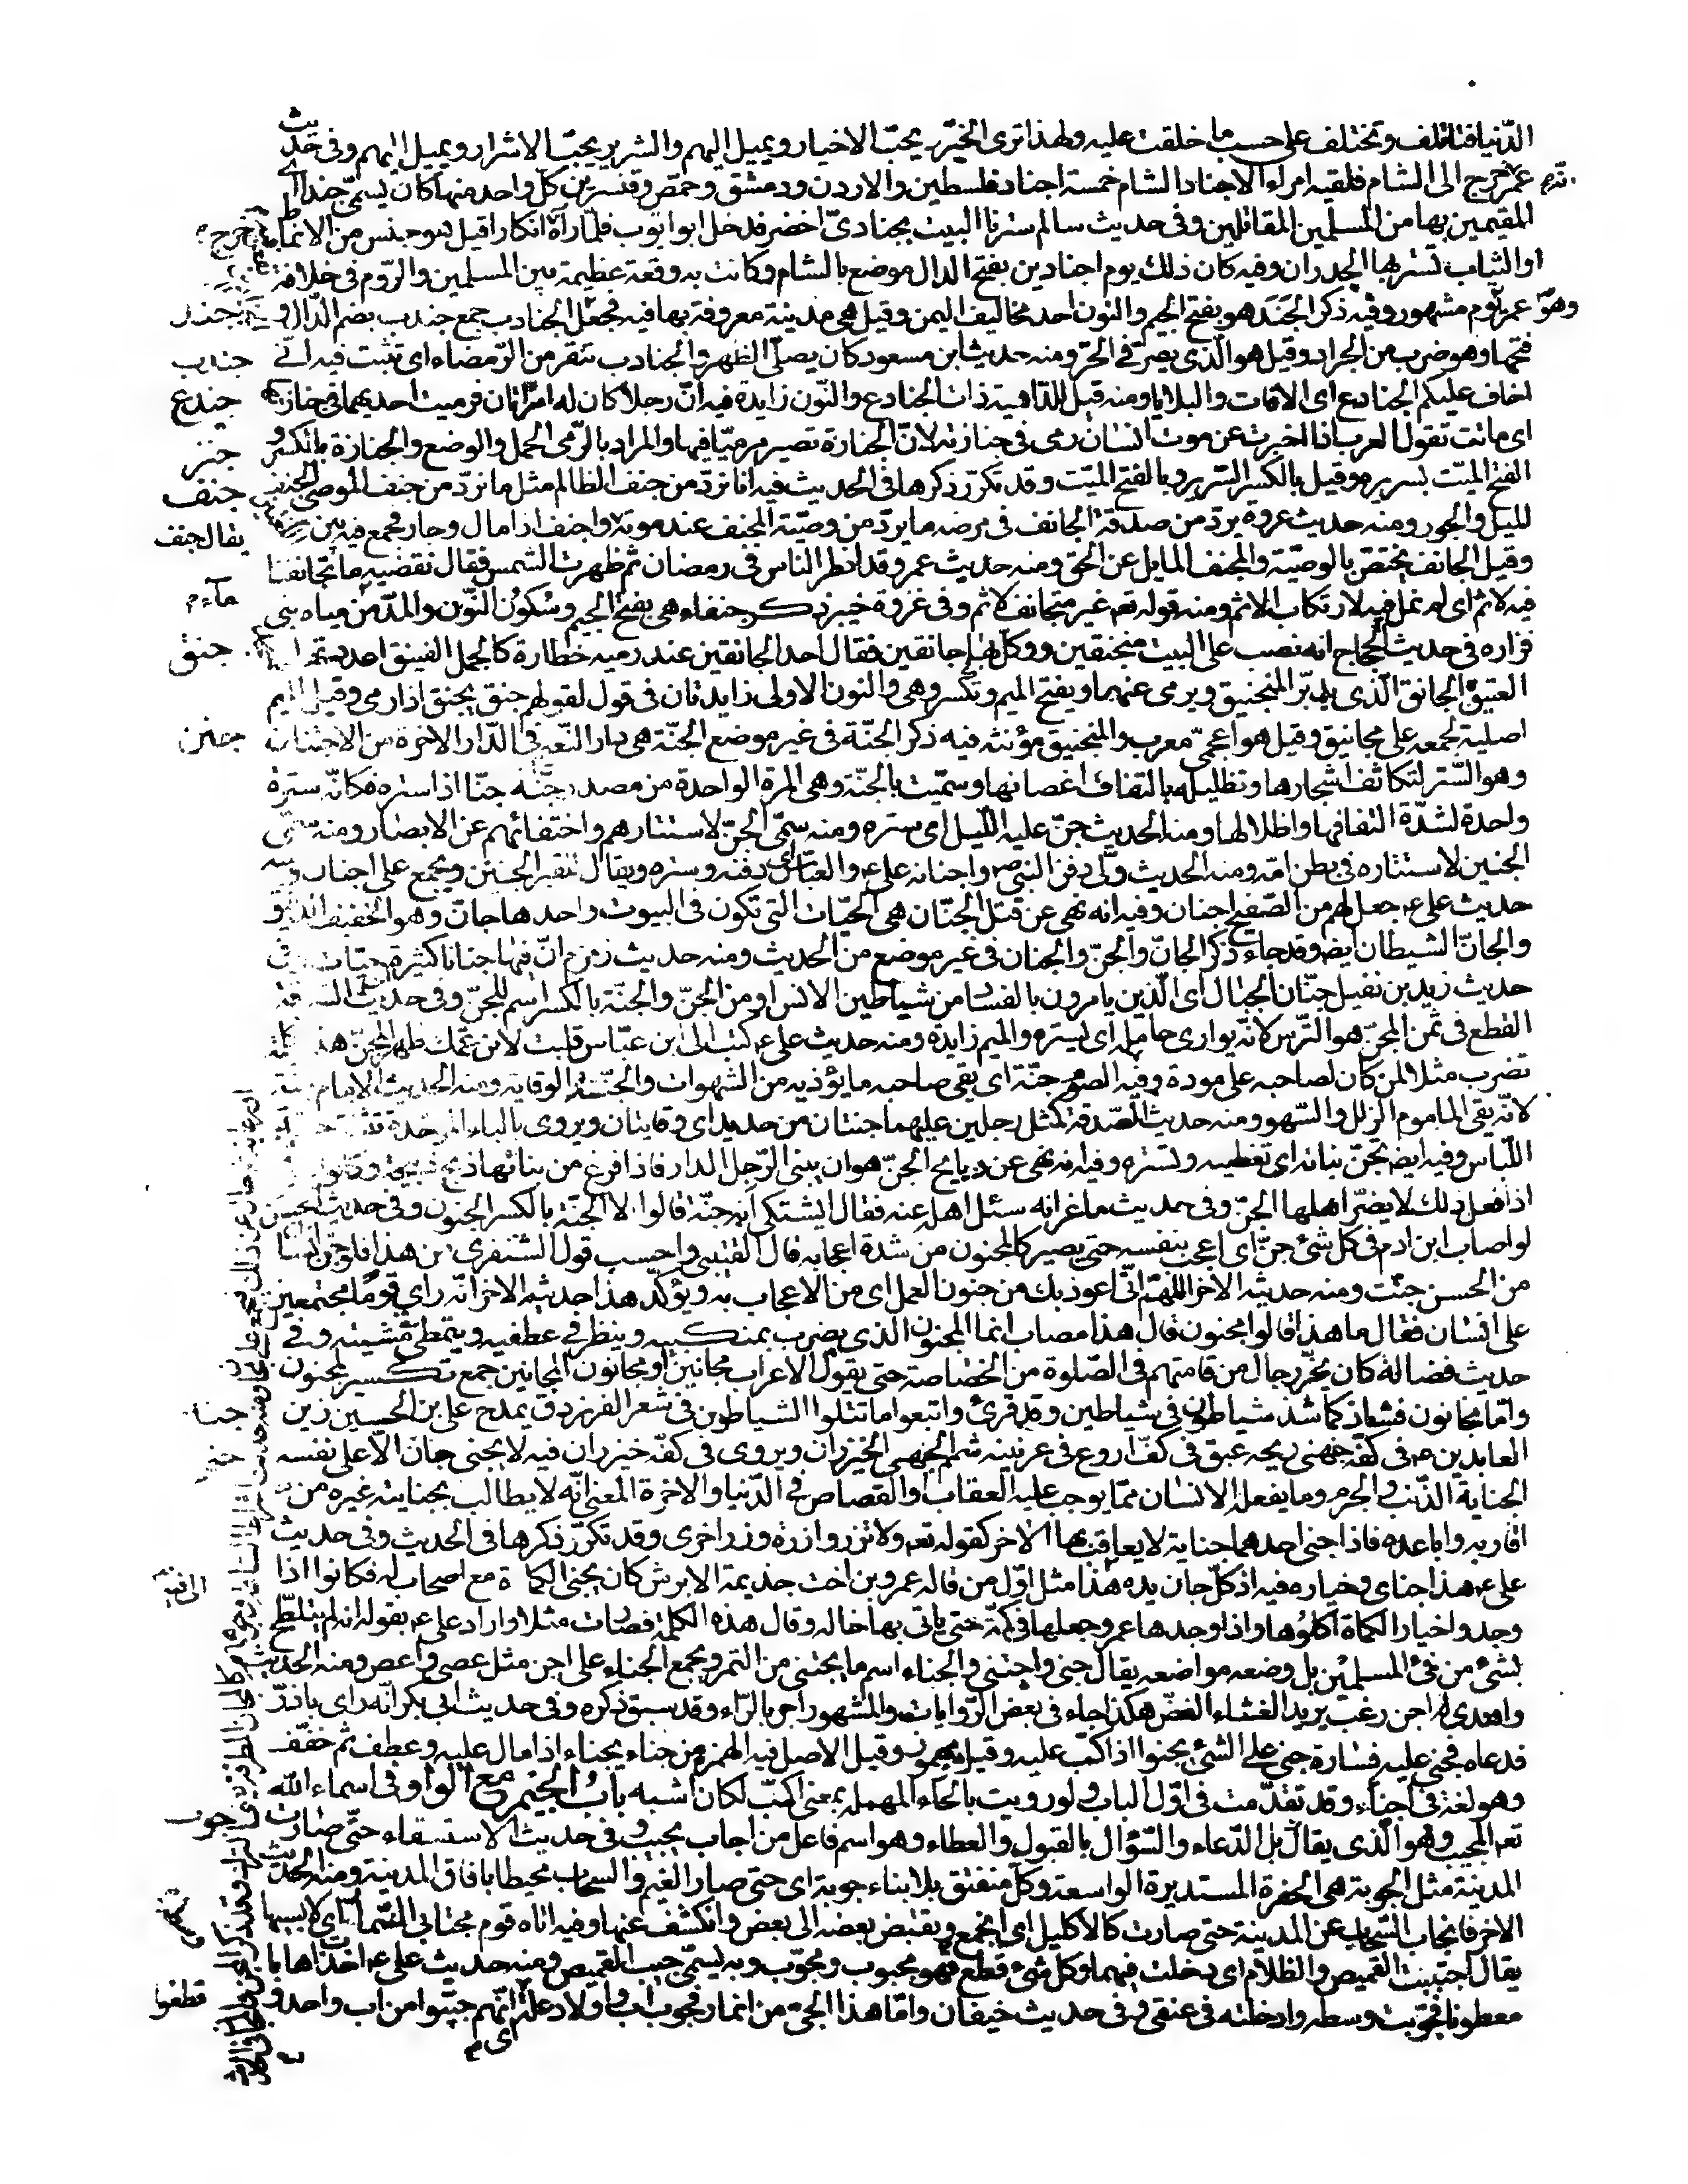 الدّنيا فتاتلف وتختلف على حسب ما خلقت عليه ولهذا ترى الخيّر يحبّ الاخيار ويميل اليهم والشرير يحبّ الاشرار ويميل اليهم وفى حديث
عمر خرج الى الشام فلقيه امراء الاجناد الشام خمسة اجناد فلسطين والاردن ودمشق وحمص وقنسرين كلّ واحد منها كان يسمّى جندا اى
المقيمين بها من المسلمين المقاتلين وفى حديث سالم سترنا البيت بجنادىّ اخضر فدخل ابو ايوب فلمّا رآه انكارا قيل هو جنس من الانماط
او الثياب تستر بها الجدران وفيه كان ذلك يوم اجنادين بفتح الدال موضع بالشام وكانت به وقعة عظيمة بين المسلمين والرّوم فى خلافة
عمر وهو يوم مشهور وفيه ذكر الجَنَد هو بفتح الجيم والنون احد مخاليف اليمن وقيل هى مدينة معروفة بها فيه فجعل الجنادب جمع جندب بضم الدّال و
فتحها وهو ضرب من الجراد وقيل هو الّذى يصرّ فى الحرّ ومنه حديث ابن مسعود كان يصلّى الظهر والجنادب تنقز من الرّمضاء اى تثب فيه انّى
اخاف عليكم الجنادع اى الافات والبلايا ومنه قيل للدّاهية ذات الجنادع والنّون زايدة فيه انّ رجلا كان له امراتان فرميت احديهما فى جنازتها
اى ماتت تقول العرب اذا اخبرت عن موت انسان رمى فى جنازته لانّ الجنازة تصير مرميّا فيها والمراد بالرّمى الحمل والوضع والجنازة بالكسر و
الفتح الميّت بسريره وقيل بالكسر السّرير وبالفتح الميّت وقد تكرّر ذكرها فى الحديث فيه انا نردّ من جنف الظالم مثل ما نردّ من جنف الموصى الجنف
الميل والجور ومنه حديث عروة يردّ من صدقة الجانف فى مرضه ما يردّ من وصيّة المجنف عند موته واجنف اذا مال وجار فجمع فيه بين
وقيل الجانف يختصّ بالوصيّة والمجنف المايل عن الحق ومنه حديث عمر وقد افطر الناس فى رمضان ثم ظهرت الشمس فقال نقضيه ما تجانفنا
فيه لاثم اى لم نمل فيه لارتكاب الاثم ومنه قوله تعم غير متجانف لاثم وفى غزوة خيبر ذكر جنفاء هى بفتح الجيم وسكون النّون والمدّ من مياه بنى
فزاره فى حديث الحجاج انه نصب على البيت منجنيقين ووكل بهما جانقين فقال احد الجانقين عند رميه خطارة كالجمل الفنيق
العتيق الجانق الّذى يدبّر المنجنيق ويرمى عنها ويفتح الميم وتكسر وهى والنون الاولى زايدتان فى قول لقولهم جنق يجنق اذا رمى وقيل الميم
اصلية لجمعه على مجانيق وقيل هو اعجمىّ معرب والمنجنيق مؤنثه فيه ذكر الجنّة فى غير موضع الجنّة هى دار النّعيم فى الدّار الاخرة من الاجتنان
وهو السّتر لتكاثف اشجارها وتظليلها بالتفاف اغصانها وسمّيت بالجنّة وهى المرة الواحدة من مصدر جنّه جنّا اذا ستره فكانّه سترة
واحدة لشدّة التفافها واظلالها ومنه الحديث جنّ عليه اللّيل اى ستره ومنه سمّى الجنّ لاستتارهم واختفائهم عن الابصار ومنه سمّى
الجنين لاستتاره فى بطن امّه ومنه الحديث ولّى دفن النبىّ ص واجنانه علىّ ع والعبّاس اى دفنه وستره ويقال للقبر الجنن ويجمع على اجنان ومنه
حديث على ع جعل لهم من الصّفيح اجنان وفيه انه نهى عن قتل الجنّان هى الحيّات التى تكون فى البيوت واحدها جانّ وهو الخفيف الدقيق و
والجانّ الشيطان ايض وقد جاء ذكر الجانّ والجنّ والجنان فى غير موضع من الحديث ومنه حديث زمزم انّ فيها جنانا كثيرة اى حيّات وفى
حديث زيد بن نفيل جنّان الجبال اى الّذين يامرون بالفساد من شياطين الانس او من الجنّ والجنّة بالكسر اسم للجنّ وفى حديث السرقة
القطع فى ثمن المجنّ هو التّرس لانّه يوارى حامله اى يستره والميم زايدة ومنه حديث على ع كتب الى ابن عبّاس قلبت لابن عمّك ظهر المجنّ هذه كلمة
تضرب مثلا لمن كان لصاحبه على مودة وفيه الصوم جنّة اى يقى صاحبه ما يؤذيه من الشهوات والجنّة الوقاية ومنه الحديث الامام جنّة
لانّه يقى الماموم الزلل والسّهو ومنه حديث الصّدقة كمثل رجلين عليهما جنتان من حديد اى وقايتان ويروى بالباء الموحدة
اللّباس وفيه ايض تجنّ بنانه اى تغطيه وتستره وفيه انه نهى عن ذبايح الجنّ هو ان يبنى الرّجل الدار فاذا فرغ من بنائها ذبح ذبيحة
اذا فعل ذلك لا يضرّ اهلها الجنّ وفى حديث ماعز انه سئل اهله عنه فقال ايشتكى ام به جنّة قالوا لا الجنّة بالكسر الجنون وفى حديث الحسن
لو اصاب ابن ادم فى كل شئ جنّ اى اعجب بنفسه حتى يصير كالمجنون من شدة اعجابه قال القتيبى واحسب قول الشنفرى من هذا فلو جنّ انسان
من الحسن جنّت ومنه حديثه الاخر اللّهمّ انّى اعوذ بك من جنون العمل اى من الاعجاب به ويؤكّد هذا حديثه الاخر انّه راى قومًا مجتمعين
على انسان فقال ما هذا قالوا مجنون قال هذا مصاب انما المجنون الذى يضرب بمنكبيه وينظر فى عطفيه ويتمطى فى مشيته وفى
حديث فضالة كان يخرّ رجال من قامتهم فى الصّلوة من الخصاصة حتى يقول الاعراب مجانين او مجانون المجانين جمع تكسير لمجنون
وامّا مجانون فشاذ كما شذ شياطون فى شياطين وقد قرئ واتبعوا ما تتلوا الشياطون فى شعر الفرزدق يمدح على بن الحسين زين
العابدين ع فى كفّه جهنى ريحه عبق فى كفّ اروع فى عرنينه شمم الجهنى الخيزران ويروى فى كفّه خيزران فيه لا يجنى جان الّا على نفسه
الجناية الذّنب والجرم وما يفعله الانسان ممّا يوجب عليه العقاب او القصاص فى الدّنيا والاخرة المعنى انّه لا يطالب بجنايته غيره من
اقاربه واباعده فاذا جنى احدهما جناية لا يعاقب بها الاخر كقوله تعم ولا تزر وازرة وزر اخرى وقد تكرّر ذكرها فى الحديث وفى حديث
على ع هذا جناى وخياره فيه اذ كلّ جان يده هذا مثل اوّل من قاله عمرو بن اخت جذيمة الابرش كان يجنى الكماة مع اصحاب له فكانوا اذا
وجدوا خيار الكماة اكلوها واذا وجدها عمرو جعلها فى كمّه حتى ياتى بها خاله وقال هذه الكلمة فصارت مثلا واراد على ع بقوله انه لم يتلطّخ
بشئ من فئ المسلمين بل وضعه مواضعه يقال جنى واجتنى والجناء اسم ما يجتنى من التمر ويجمع الجناء على اجن مثل عصى واعص ومنه الحديث
واهدى له اجن زغب يريد القثاء الغضّ هكذا جاء فى بعض الرّوايات والمشهور اجر بالرّاء وقد سبق ذكره وفى حديث ابى بكر انّه راى باذرّ
فدعاه فجنى عليه فسارّه جنى على الشئ يجنوا اذا اكبّ عليه وقيل هو مهموز وقيل الاصل فيه الهمزة من جناء يجناء اذا مال عليه وعطف ثم خفّف
وهو لغة فى اجناء وقد تقدّمت فى اوّل الباب ولو رويت بالحاء المهملة بمعنى اكبّ لكان اشبه باب الجيم مع الواو فى اسماء اللّه
تعم المجيب وهو الّذى يقابل الدّعاء والسّؤال بالقبول والعطاء وهو اسم فاعل من اجاب يجيب وفى حديث الاستسقاء حتّى صارت
المدينة مثل الجوبة هى الحفرة المستديرة الواسعة وكل منفتق بلا بناء جوبة اى حتى صار الغيم والسحاب محيطا بافاق المدينة ومنه الحديث
الاخر فانجاب السّحاب عن المدينة حتى صارت كالاكليل اى انجمع وتقبض بعضه الى بعض وانكشف عنها وفيه اتاه قوم مجتابى النّمار اى لابسيها
يقال اجتبت القميص والظلام اى دخلت فيهما وكل شئ قطع وسطه فهو مجبوب ومجوّب وبه يسمّى جيب القميص ومنه حديث على ع اخذت اهابا
معطونا فجوّبت وسطه وادخلته فى عنقى وفى حديث خيفان وامّا هذا الحىّ من انمار فجوب اب واولاد علّة اى انهم جيبوا من اب واحد و
جندل
جندب
جندع
جنز
جنف
يقال جنف
جنق
جنن
جنا
جوب
قطعوا